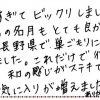 すぎて ビックリしまし
の名月もとても良か
長野県で巣ごもりに
ました。これだけで
和の感じがステキで
気に入りが増えました